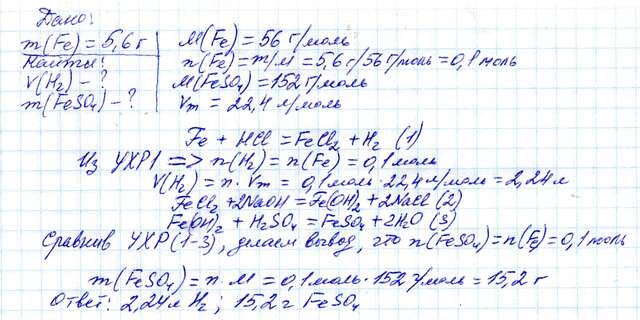 Дано:
m(Fe) = 5,6 г
Найти:
V(H₂) - ?
m(FeSO₄) - ?
M(Fe) = 56 г/моль
n(Fe) = m/M = 5,6 г/56 г/моль = 0,1 моль
M(FeSO₄) = 152 г/моль
Vm = 22,4 л/моль
Fe + HCl = FeCl₂ + H₂ (1)
Из УХР1 => n(H₂) = n(Fe) = 0,1 моль
V(H₂) = n · Vm = 0,1 моль · 22,4 л/моль = 2,24 л
FeCl₂ + 2NaOH = Fe(OH)₂ + 2NaCl (2)
Fe(OH)₂ + H₂SO₄ = FeSO₄ + 2H₂O (3)
Сравнив УХР(1-3), делаем вывод, что n(FeSO₄) = n(Fe) = 0,1 моль
m(FeSO₄) = n · M = 0,1 моль · 152 г/моль = 15,2 г
Ответ: 2,24 л H₂ ; 15,2 г FeSO₄